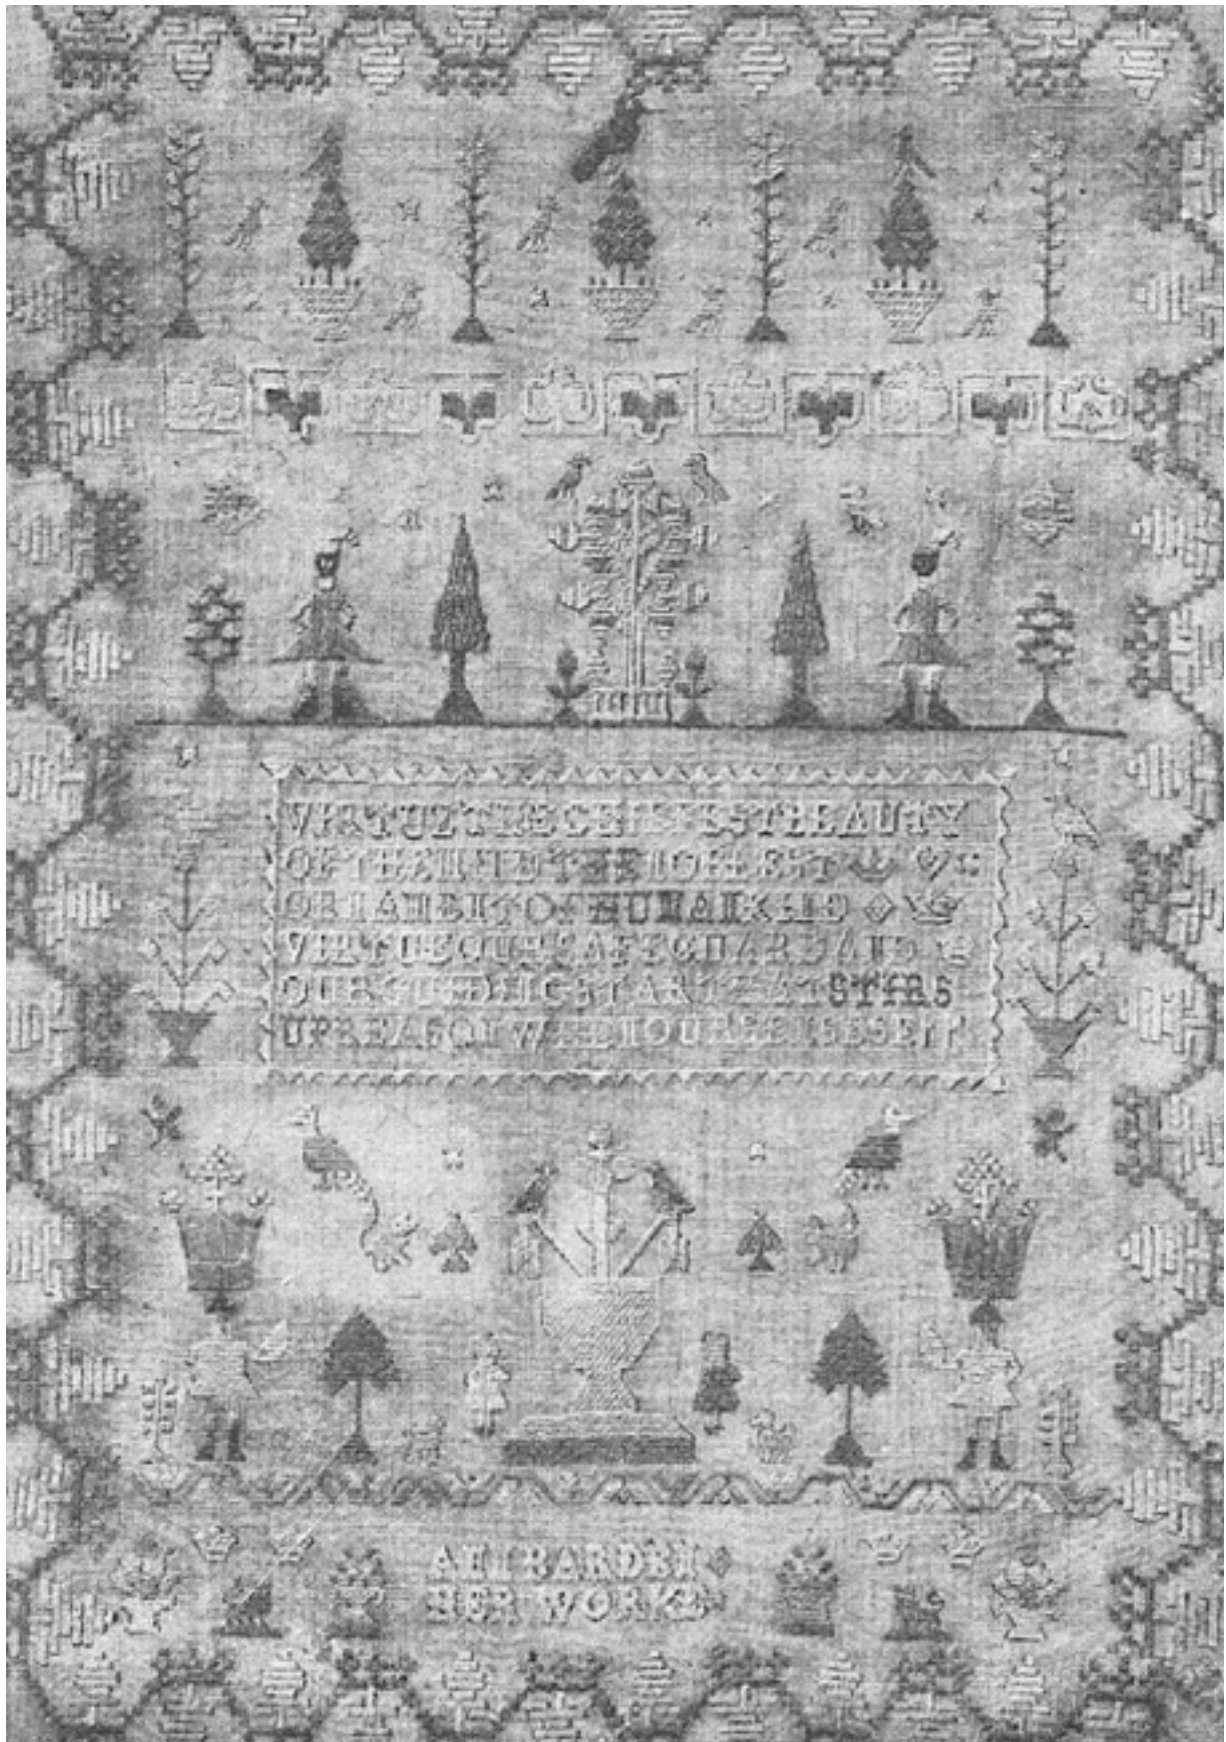 VIRTUE THE CHIEFEST BEAUTY
OF THE MIND THE NOBLEST
ORNAMENT OF HUMANKIND
VIRTUE OUR SAFEGUARD AND
OUR GUIDING STAR THAT STIRS
UP REASON WHEN OUR SENSES ERR
ANN BARDEN
HER WORKE